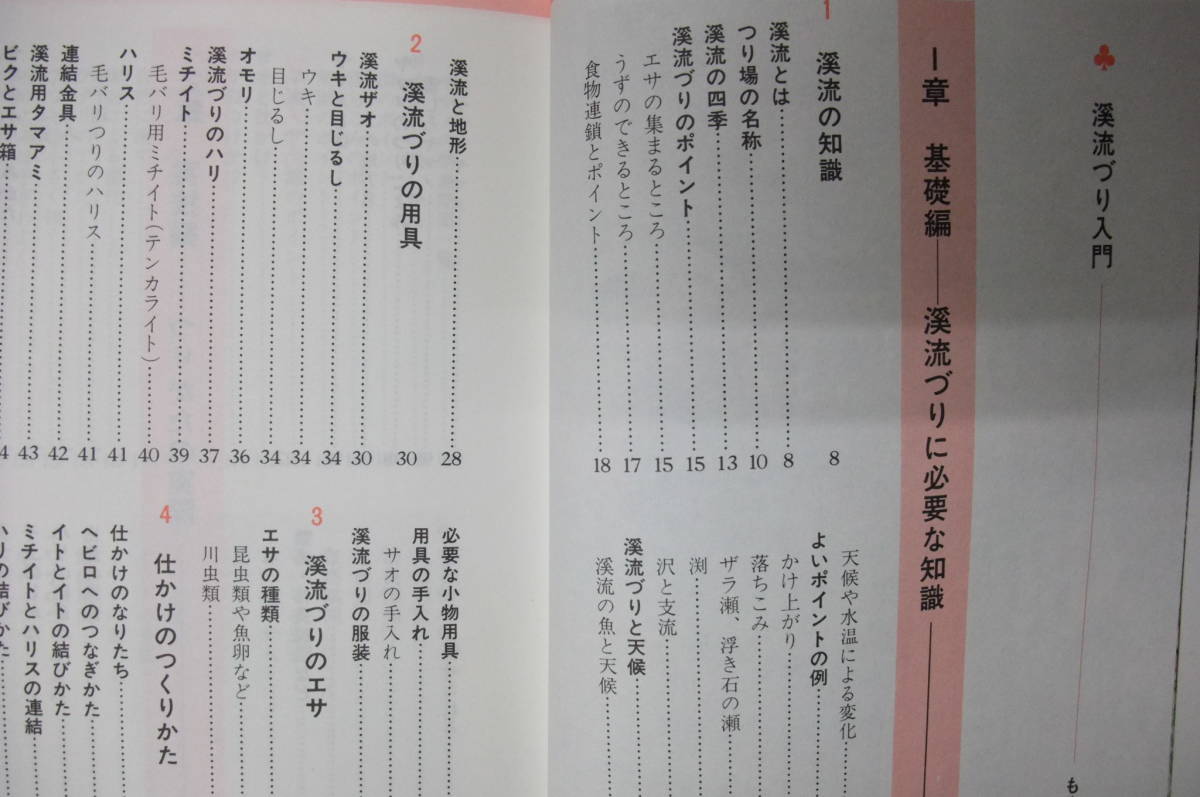 ♣ 溪流づり入門
も
I章 基礎編——溪流づりに必要な知識
1 溪流の知識 8
溪流とは 8
つり場の名称 10
溪流の四季 13
溪流づりのポイント 15
エサの集まるところ 15
うずのできるところ 17
食物連鎖とポイント 18
天候や水温による変化
よいポイントの例
かけ上がり
落ちこみ
ザラ瀬、浮き石の瀬
渕
沢と支流
溪流づりと天候
溪流の魚と天候
溪流と地形 28
2 溪流づりの用具 30
溪流ザオ 30
ウキと目じるし 34
ウキ 34
目じるし 34
オモリ 36
溪流づりのハリ 37
ミチイト 39
毛バリ用ミチイト(テンカライト) 40
ハリス 41
毛バリつりのハリス 41
連結金具 42
溪流用タマアミ 43
ビクとエサ箱
必要な小物用具
用具の手入れ
サオの手入れ
溪流づりの服装
3 溪流づりのエサ
エサの種類
昆虫類や魚卵など
川虫類
4 仕かけのつくりかた
仕かけのなりたち
ヘビロへのつなぎかた
イトとイトの結びかた
ミチイトとハリスの連結
ハリの結びかた